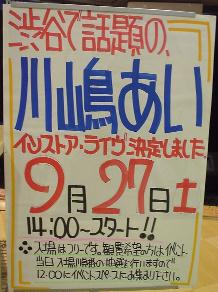 渋谷で話題の、
川嶋あい
インストア・ライヴ決定しました。
9月27日土
14:00〜スタート!!
入場はフリーです。観覧希望の方はイベント
当日 入場順の抽選を行いますので
12:00にイベントスペースにお集まり下さい。